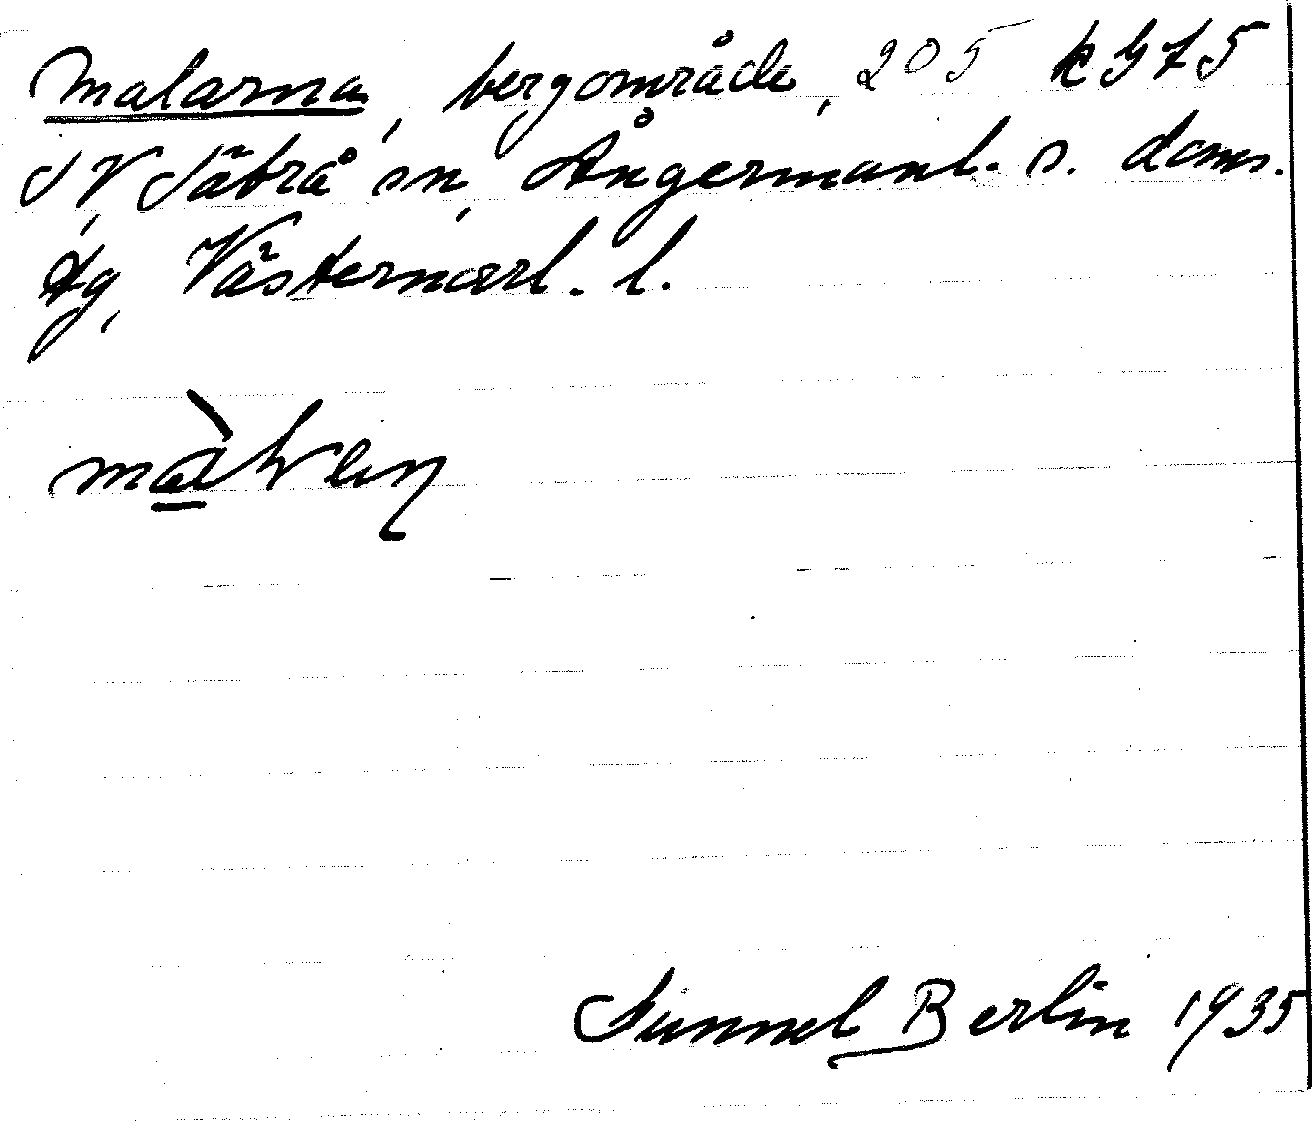 Malarna, bergområde, 205 k G 7 5
SV, Säbrå sn, Ångermanl. s. doms.
tg, Västernorrl. l.
Gunnel Berlin 1935